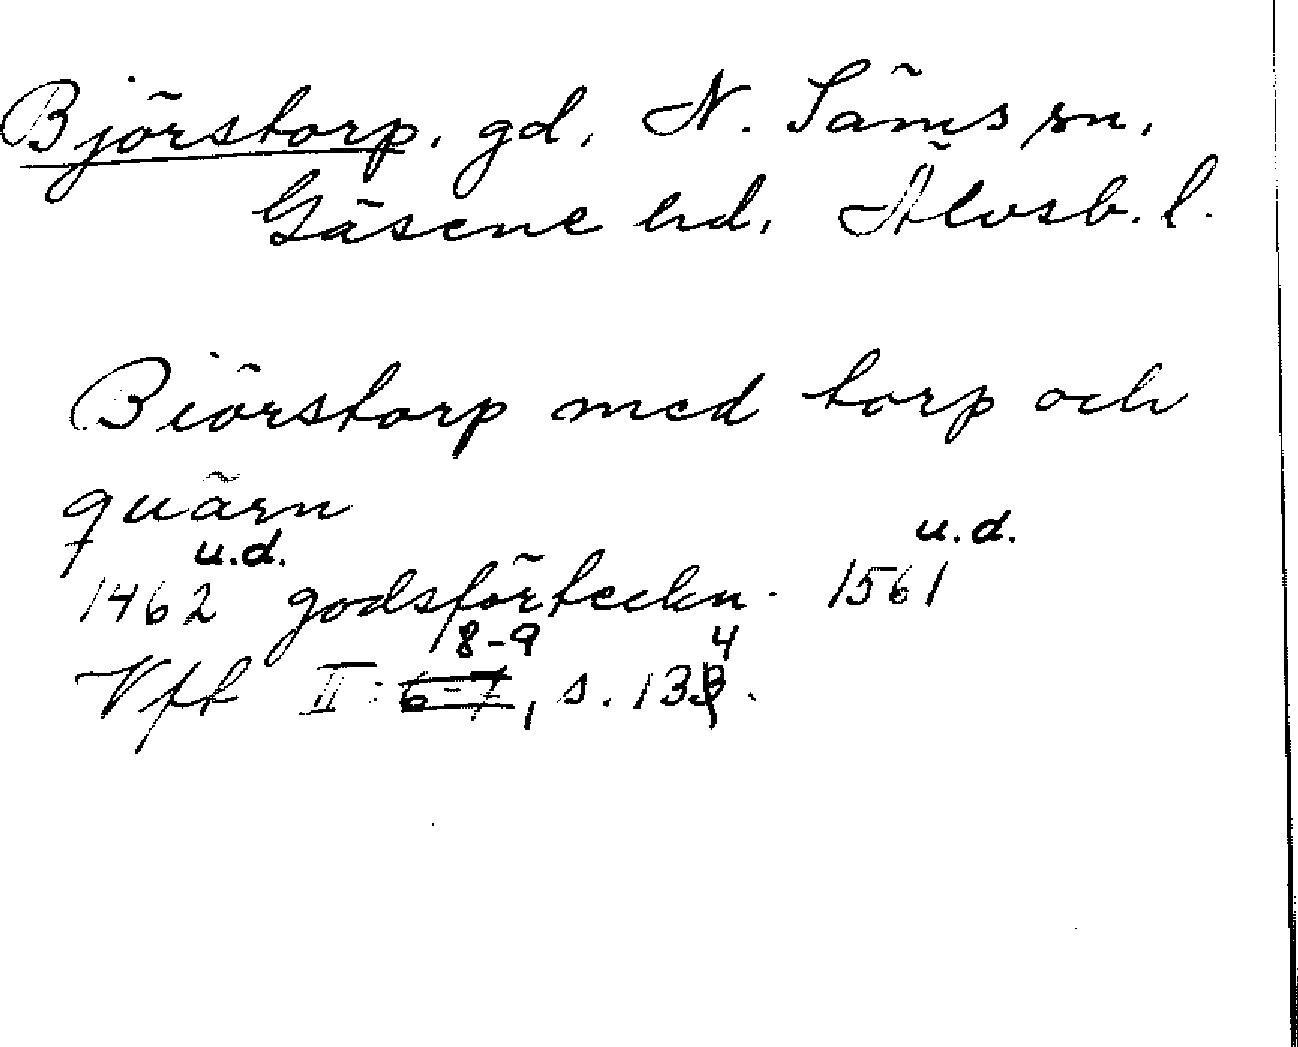 Björstorp, gd, N. Säms sn,
Gäsene hd, Älvsb. l.
Biörstorp med torp och
quärn
u.d. u.d.
1462 godsförteckn. 1561
8-9 4
Vft II: 6-7, s. 133.